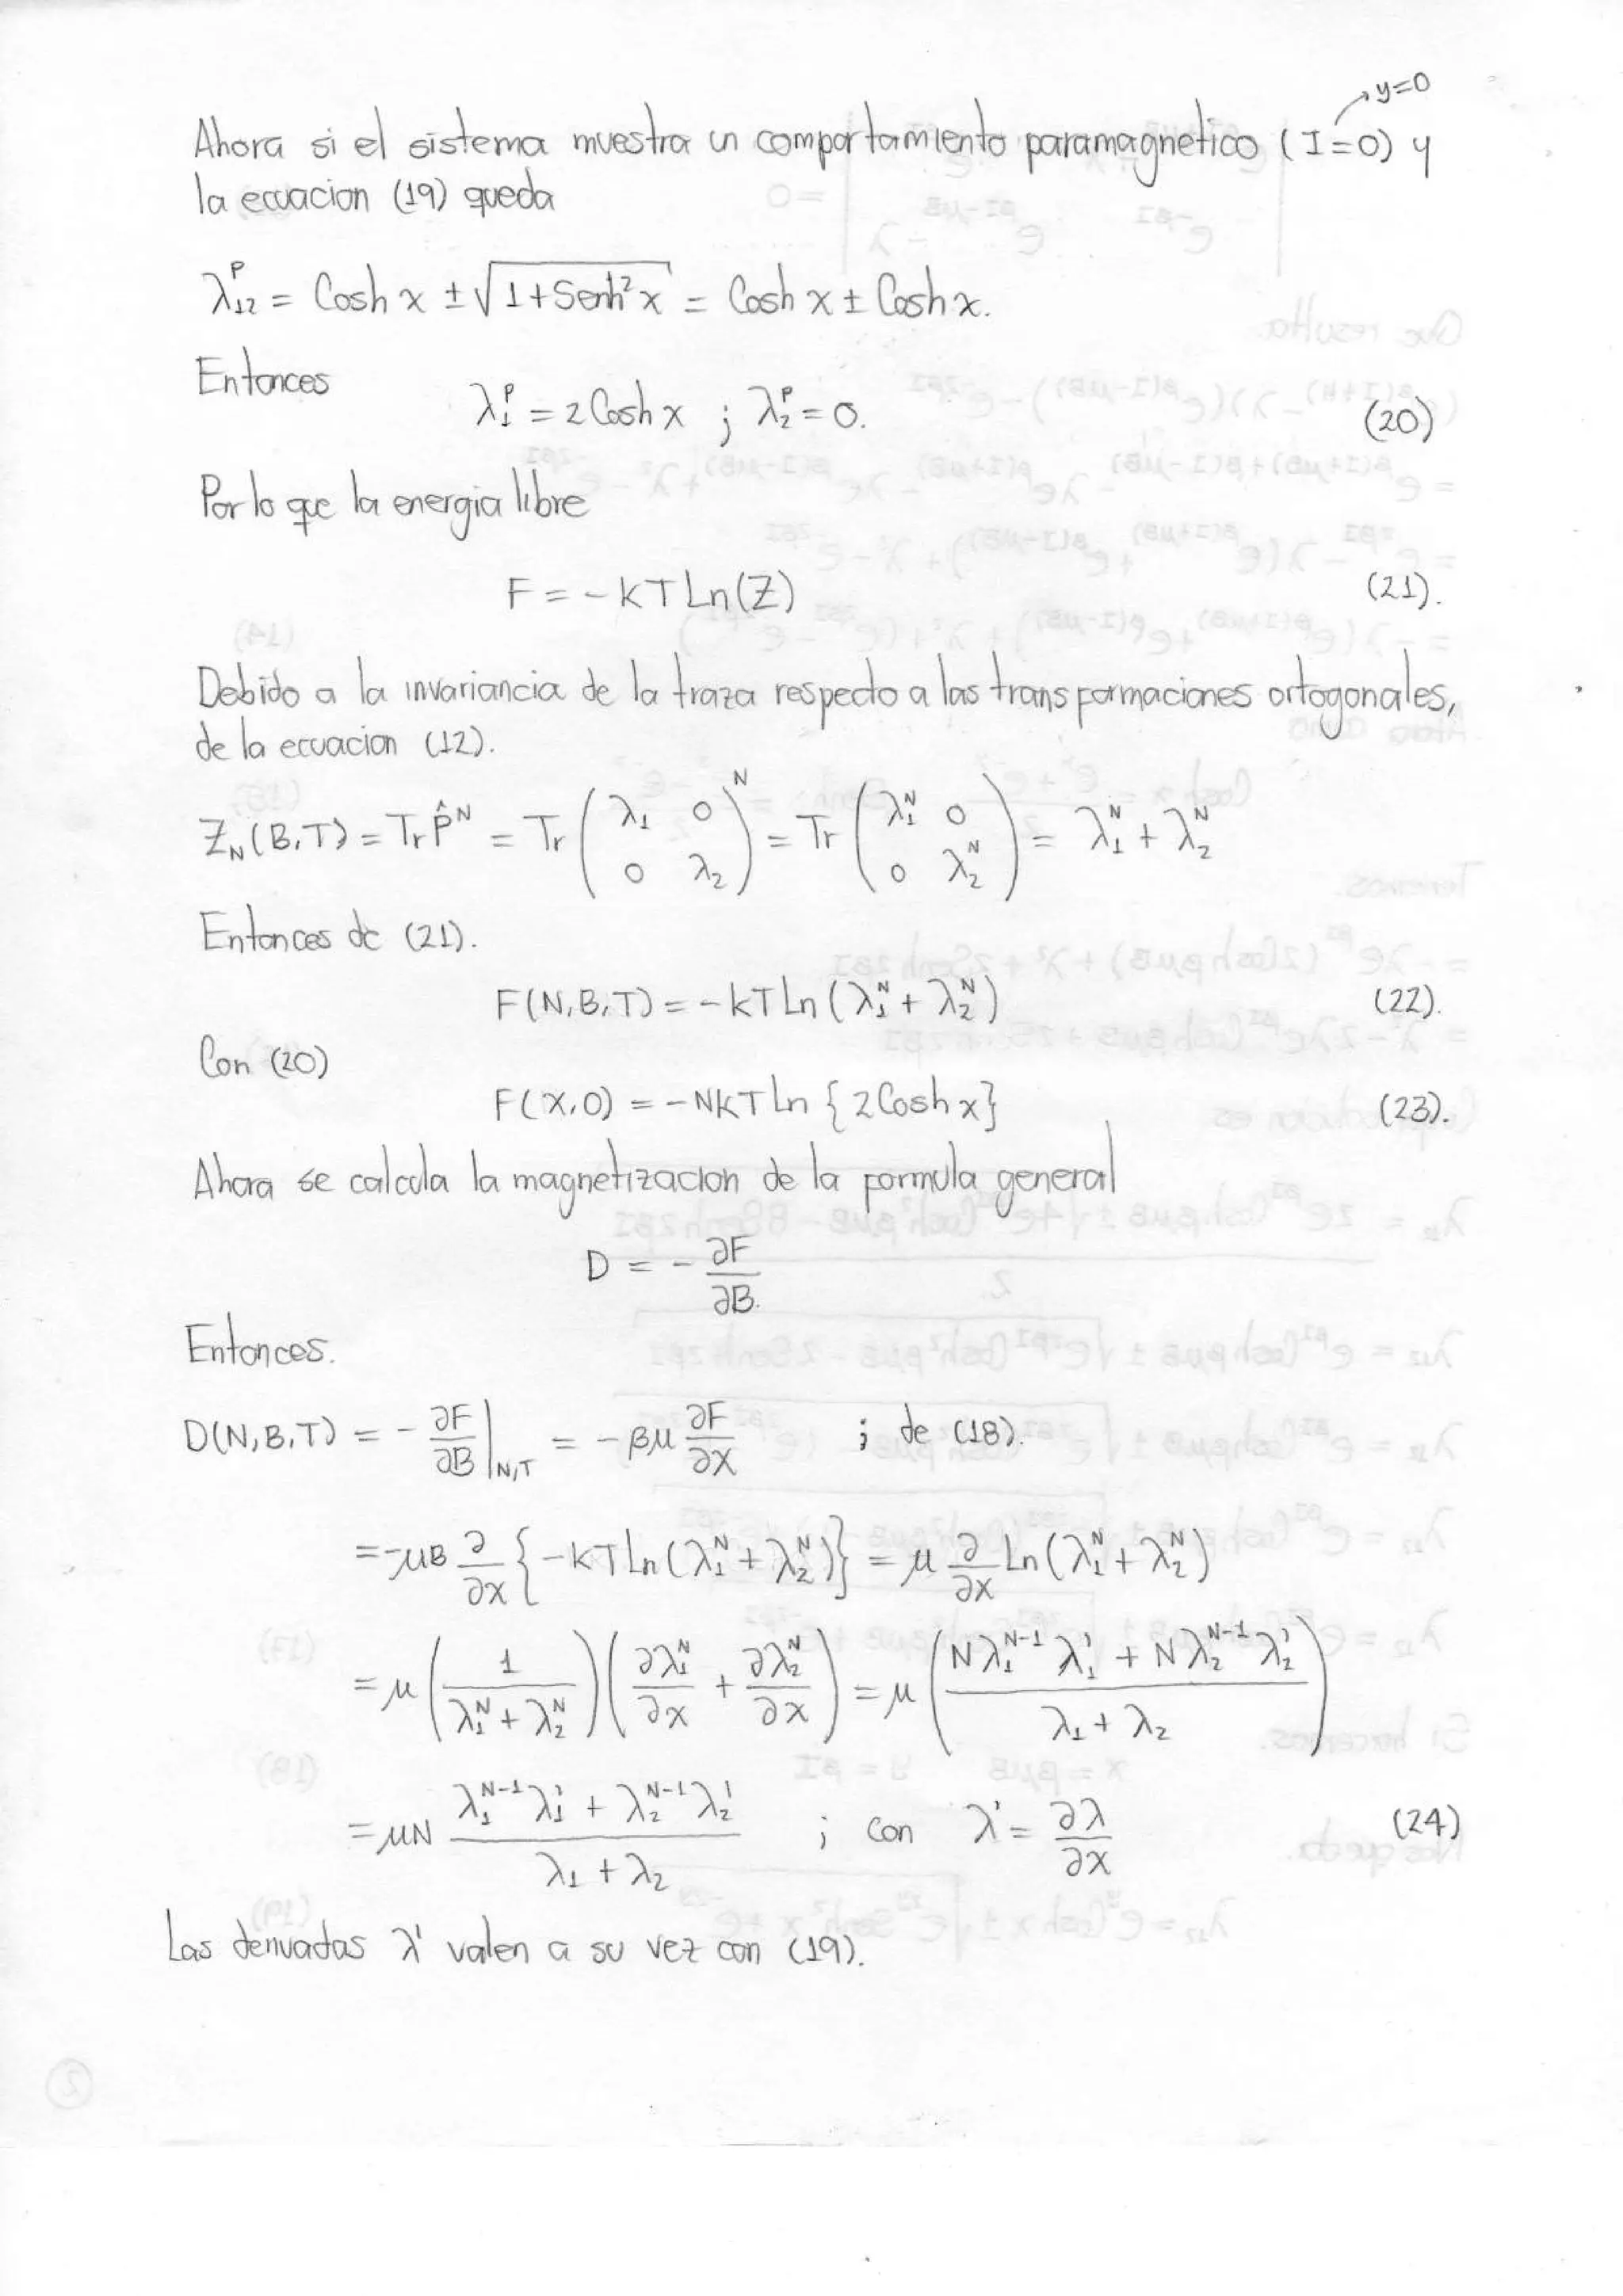 y=0
Ahora si el sistema muestra un comportamiento paramagnetico (I=0) y
la ecuacion (19) queda
λ₁₂ᴾ = Cosh x ± √(1+Senh²x) = Cosh x ± Cosh x.
Entonces
λ₁ᴾ = 2 Cosh x ; λ₂ᴾ = 0. (20)
Por lo que la energia libre
F = -kT Ln(Z) (21).
Debido a la invariancia de la traza respecto a las transformaciones ortogonales,
de la ecuacion (12).
Z_N(B,T) = Tr P̂ᴺ = Tr (λ₁ 0 / 0 λ₂)ᴺ = Tr (λ₁ᴺ 0 / 0 λ₂ᴺ) = λ₁ᴺ + λ₂ᴺ
Entonces de (21).
F(N,B,T) = -kT Ln(λ₁ᴺ + λ₂ᴺ) (22).
Con (20)
F(x,0) = -NkT Ln {2 Cosh x} (23).
Ahora se calcula la magnetizacion de la formula general
D = - ∂F/∂B.
Entonces.
D(N,B,T) = - ∂F/∂B |N,T = -βμ ∂F/∂x ; de (18).
= -μB ∂/∂x {-kT Ln(λ₁ᴺ + λ₂ᴺ)} = μ ∂/∂x Ln(λ₁ᴺ + λ₂ᴺ)
= μ (1/(λ₁ᴺ + λ₂ᴺ)) (∂λ₁ᴺ/∂x + ∂λ₂ᴺ/∂x) = μ ((Nλ₁ᴺ⁻¹ λ₁' + Nλ₂ᴺ⁻¹ λ₂')/(λ₁ + λ₂))
= μN (λ₁ᴺ⁻¹ λ₁' + λ₂ᴺ⁻¹ λ₂')/(λ₁ + λ₂) ; con λ' = ∂λ/∂x (24)
Las derivadas λ' valen a su vez con (19).